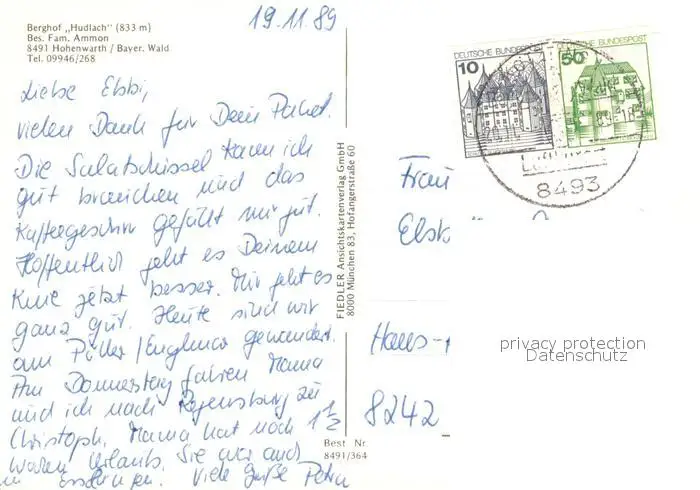 Berghof „Hudlach" (833 m)
Bes. Fam. Ammon
8491 Hohenwarth / Bayer. Wald
Tel. 09946/268
19.11.89
Liebe Elsbi,
vielen Dank für Dein Paket.
Die Salatschüssel kann ich
gut brauchen und das
Kaffeegeschirr gefällt mir gut.
Hoffentlich geht es Deinem
Knie jetzt besser. Mir geht es
ganz gut. Heute sind wir
am /Englmar gewandert.
Am Donnerstag fahren Mama
und ich nach Regensburg zu
Christoph. Mama hat noch 1 1/2
Wochen Urlaub. Sie war auch
in Viele Grüße Petra
FIEDLER Ansichtskartenverlag GmbH
8000 München 83, Hofangerstraße 60
Best Nr.
8491/364
DEUTSCHE BUNDESPOST
10
DEUTSCHE BUNDESPOST
50
8493
Frau
Elsb
Hans-
8242
privacy protection
Datenschutz